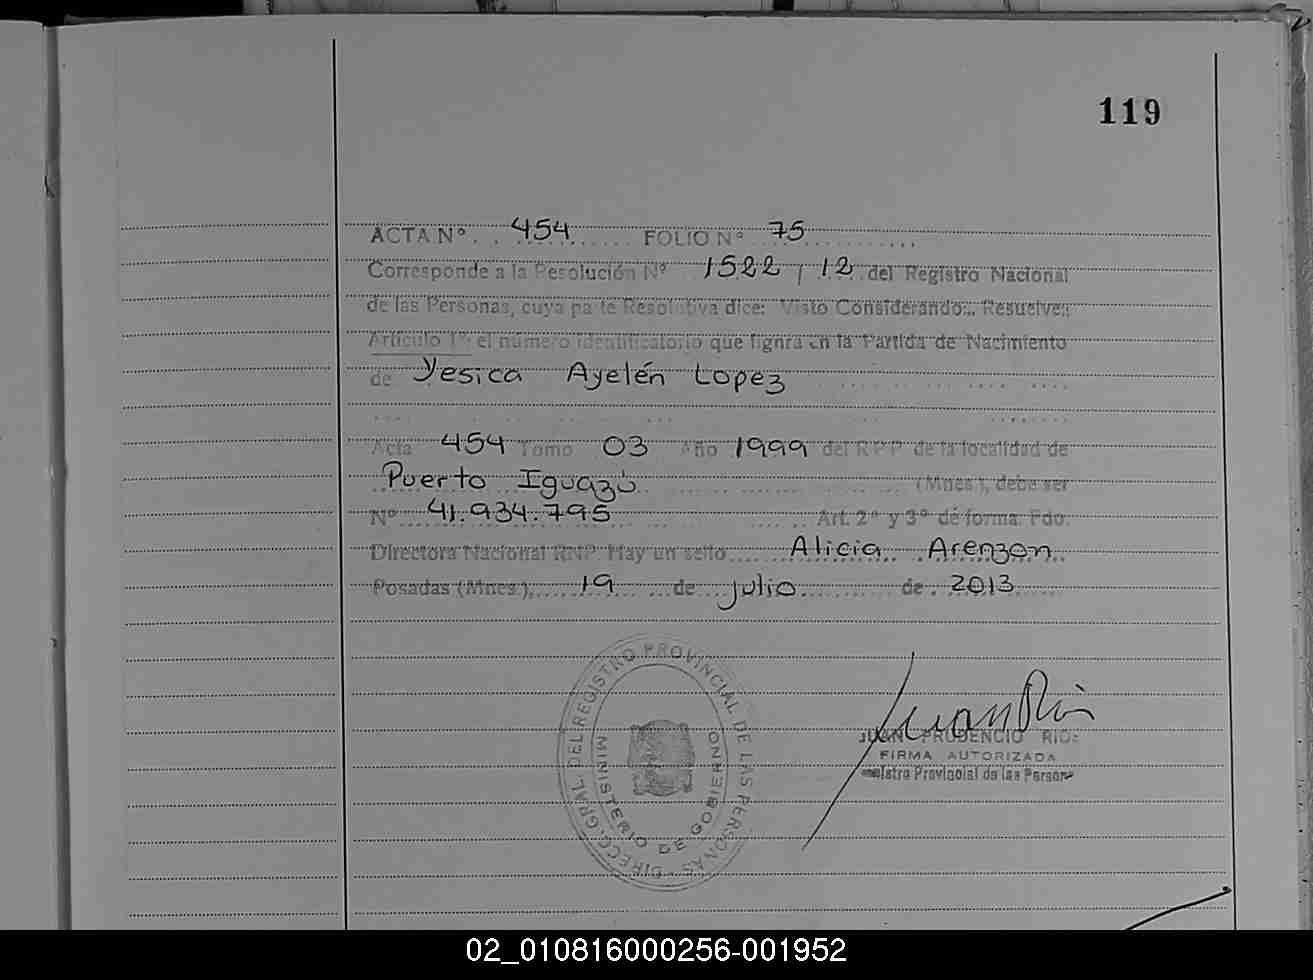 119
ACTA Nº. . 454 FOLIO Nº 75
Corresponde a la Resolución Nº 1522 / 12 del Registro Nacional
de las Personas, cuya parte Resolutiva dice: Visto Considerando... Resuelve:
Artículo 1º: el número identificatorio que figura en la Partida de Nacimiento
de Yesica Ayelén Lopez
Acta 454 Tomo 03 Año 1999 del RPP de la localidad de
Puerto Iguazú (Mnes.), debe ser
Nº 41.934.795 Art. 2º y 3º de forma. Fdo.
Directora Nacional RNP. Hay un sello.... Alicia Arenzon
Posadas (Mnes.), 19 de julio de 2013
DIRECC. GRAL. DEL REGISTRO PROVINCIAL DE LAS PERSONAS
MINISTERIO DE GOBIERNO
JUAN PRUDENCIO RIOS
FIRMA AUTORIZADA
Provincial de las Personas
02_010816000256-001952